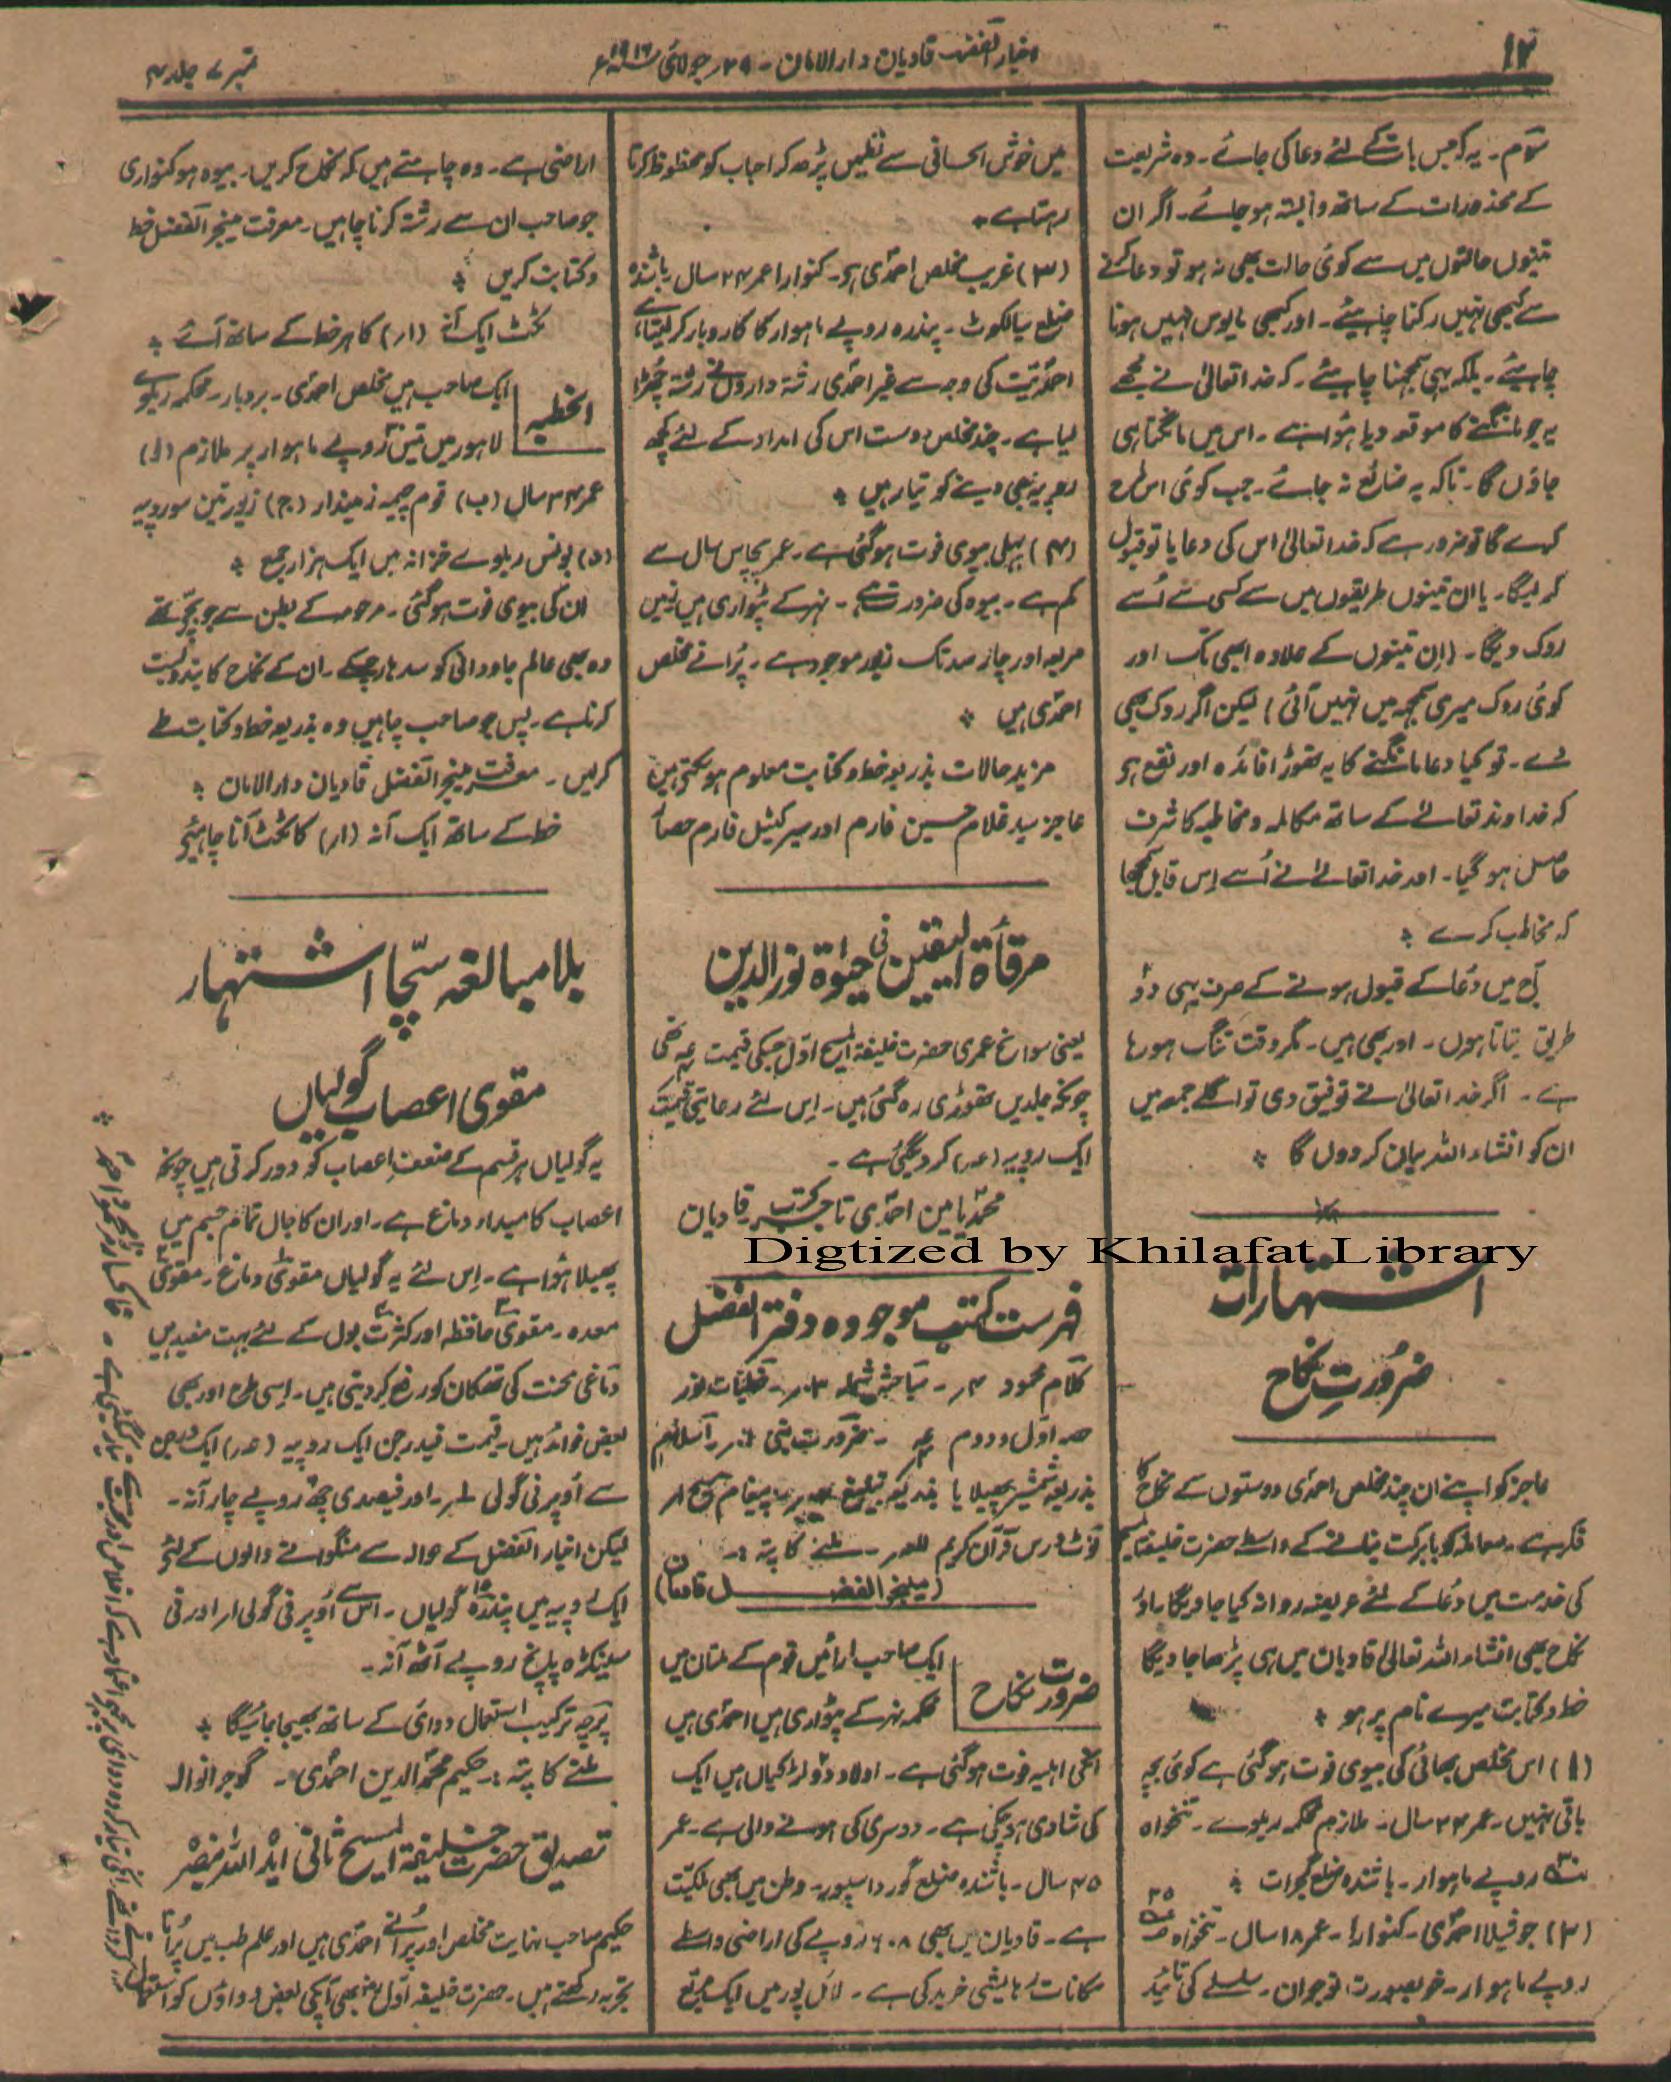 ۱۲
اخبار الفضل قادیان دارالامان - ۲۹ر جولائی ۱۹۱۶ء
نمبر ۷ جلد ۴
سوم - یہ کہ جس بات کے لئے دعا کی جائے - وہ شریعت
کے محذورات کے ساتھ وابستہ ہو جائے - اگر ان
تینوں حالتوں میں سے کوئی حالت بھی نہ ہو تو دعا کرنے
سے کبھی نہیں رکنا چاہیئے - اور کبھی مایوس نہیں ہونا
چاہیئے - بلکہ یہی سمجھنا چاہیئے - کہ خدا تعالیٰ نے مجھے
یہ جو مانگنے کا موقعہ دیا ہوا ہے - اس میں مانگتا ہی
جاؤں گا - تاکہ یہ ضائع نہ جائے - جب کوئی اس طرح
کہے گا تو ضرور ہے کہ خدا تعالیٰ اس کی دعا یا تو قبول
کر لیگا - یا ان تینوں طریقوں میں سے کسی سے اُسے
روک دیگا - (ان تینوں کے علاوہ ابھی تک اور
کوئی روک میری سمجھ میں نہیں آئی) لیکن اگر روک بھی
لے - تو کیا دعا مانگنے کا یہ تھوڑا فائدہ اور نفع ہے
کہ خداوند تعالےٰ کے ساتھ مکالمہ و مخاطبہ کا شرف
حاصل ہو گیا - اور خدا تعالےٰ نے اُسے اس قابل سمجھا
کہ مخاطب کرے ÷
آج میں دُعا کے قبول ہونے کے صرف یہی دو
طریق بتاتا ہوں - اور بھی ہیں - مگر وقت تنگ ہو رہا
ہے - اگر خدا تعالیٰ نے توفیق دی تو اگلے جمعہ میں
ان کو انشاء اللہ بیان کر دوں گا ÷
اشتہارات
ضرورتِ نکاح
عاجز کو اپنے ان چند مخلص احمدی دوستوں کے نکاح کا
فکر ہے - معاملہ کو بابرکت بنانے کے واسطے حضرت خلیفۃ المسیح
کی خدمت میں دُعا کے لئے عریضہ روانہ کیا جاویگا اور
نکاح بھی انشاء اللہ تعالیٰ قادیان میں ہی پڑھا جاویگا
خط و کتابت میرے نام پر ہو ÷
(۱) اس مخلص بھائی کی بیوی فوت ہو گئی ہے کوئی بچہ
باقی نہیں - عمر ۲۴ سال - ملازم محکمہ ریلوے - تنخواہ
روپے ماہوار - باشندہ ضلع گجرات ÷
(۲) جوشیلا احمدی - کنوارا - عمر ۱۸ سال - تنخواہ ۳۵
روپے ماہوار - خوبصورت نوجوان - سلسلے کی تائید
میں خوش الحانی سے نظمیں پڑھ کر احباب کو محظوظ کرتا
رہتا ہے ÷
(۳) غریب مخلص احمدی ہے - کنوارا عمر ۲۴ سال باشندہ
ضلع سیالکوٹ - پندرہ روپے ماہوار کا کاروبار کر لیتا ہے
احمدیت کی وجہ سے غیر احمدی رشتہ داروں نے رشتہ چھڑا
لیا ہے - چند مخلص دوست اس کی امداد کے لئے کچھ
روپیہ بھی دینے کو تیار ہیں ÷
(۴) پہلی بیوی فوت ہو گئی ہے - عمر پچاس سال سے
کم ہے - بیوہ کی ضرورت ہے - نہر کے پٹواری ہیں زمین
مربعہ اور چار صد تک زیور موجود ہے - پُرانے مخلص
احمدی ہیں ÷
مزید حالات بذریعہ خط و کتابت معلوم ہو سکتے ہیں
عاجز سید غلام حسین فارم اورسیر کیٹل فارم حصار
مرقاۃ الیقین فی حیٰوۃ نور الدین
یعنی سوانح عمری حضرت خلیفۃ المسیح اوّل جسکی قیمت عہ تھی
چونکہ جلدیں تھوڑی رہ گئی ہیں - اس لئے رعایتی قیمت
ایک روپیہ (عہ) کر دیگئی ہے -
محمد یامین احمدی تاجر کتب قادیان
Digtized by Khilafat Library
فہرست کتب موجودہ دفتر الفضل
کلام محمود ۴ر - مباحثہ شملہ ۳ر - خطبات نور
حصہ اوّل و دوم - ضرورت نبی - اسلام
بذریعہ شمشیر پھیلا یا بذریعہ تبلیغ - پیغام مسیح
نوٹ درس قرآن کریم - ملنے کا پتہ :-
(منیجر الفضل قادیان)
ضرورت نکاح
ایک صاحب ارائیں قوم کے ملتان میں
محکمہ نہر کے پٹواری ہیں احمدی ہیں
انکی اہلیہ فوت ہو گئی ہے - اولاد دو لڑکیاں ہیں ایک
کی شادی ہو چکی ہے - دوسری کی ہونے والی ہے - عمر
۴۵ سال - باشندہ ضلع گورداسپور - وطن میں بھی ملکیت
ہے - قادیان میں بھی ۶۰۸ روپے کی اراضی واسطے
مکانات رہائشی خرید کی ہے - لائل پور میں ایک مربع
اراضی ہے - وہ چاہتے ہیں کہ نکاح کریں - بیوہ ہو کنواری
جو صاحب ان سے رشتہ کرنا چاہیں - معرفت منیجر الفضل خط
و کتابت کریں ÷
ٹکٹ ایک آنہ (ار) کا ہر خط کے ساتھ آئے ÷
الخطبہ
ایک صاحب ہیں مخلص احمدی - بردبار - محکمہ ریلوے
لاہور میں تیس روپے ماہوار پر ملازم (ا)
عمر ۳۴ سال (ب) قوم چیمہ زمیندار (ج) زیور تین سو روپیہ
(د) بونس ریلوے خزانہ میں ایک ہزار جمع ÷
ان کی بیوی فوت ہو گئی - مرحومہ کے بطن سے جو بچے تھے
وہ بھی عالم جاودانی کو سدھار چکے - ان کے نکاح کا بندوبست
کرنا ہے - پس جو صاحب چاہیں وہ بذریعہ خط و کتابت طے
کر لیں - معرفت منیجر الفضل قادیان دارالامان ÷
خط کے ساتھ ایک آنہ (ار) کا ٹکٹ آنا چاہیئے
بلا مبالغہ سچّا اشتہار
مقوی اعصاب گولیاں
یہ گولیاں ہر قسم کے ضعف اعصاب کو دور کرتی ہیں چونکہ
اعصاب کا میدا دماغ ہے - اور ان کا جال تمام جسم میں
پھیلا ہوا ہے - اس لئے یہ گولیاں مقوی دماغ - مقوی
معدہ - مقوی حافظہ اور کثرت بول کے لئے بہت مفید ہیں
دماغی محنت کی تھکان کو رفع کر دیتی ہیں - اسی طرح اور بھی
بعض فوائد ہیں - قیمت فیدرجن ایک روپیہ (عہ) ایک درجن
سے اُوپر فی گولی - اور فیصدی چھ روپے چار آنہ -
لیکن اخبار الفضل کے حوالہ سے منگوانے والوں کے لئے
ایک روپیہ میں پندرہ گولیاں - اس سے اُوپر فی گولی ار اور فی
سینکڑہ پانچ روپے آٹھ آنہ -
پرچہ ترکیب استعمال دوائی کے ساتھ بھیجا جائیگا ÷
ملنے کا پتہ :- حکیم محمد الدین احمدی - گوجرانوالہ
تصدیق حضرت خلیفۃ المسیح ثانی ایدہ اللہ بنصرہ
حکیم صاحب نہایت مخلص اور پرانے احمدی ہیں اور علم طب میں پُرانا
تجربہ رکھتے ہیں - حضرت خلیفہ اوّل بھی آپکی بعض دواؤں کو استعمال